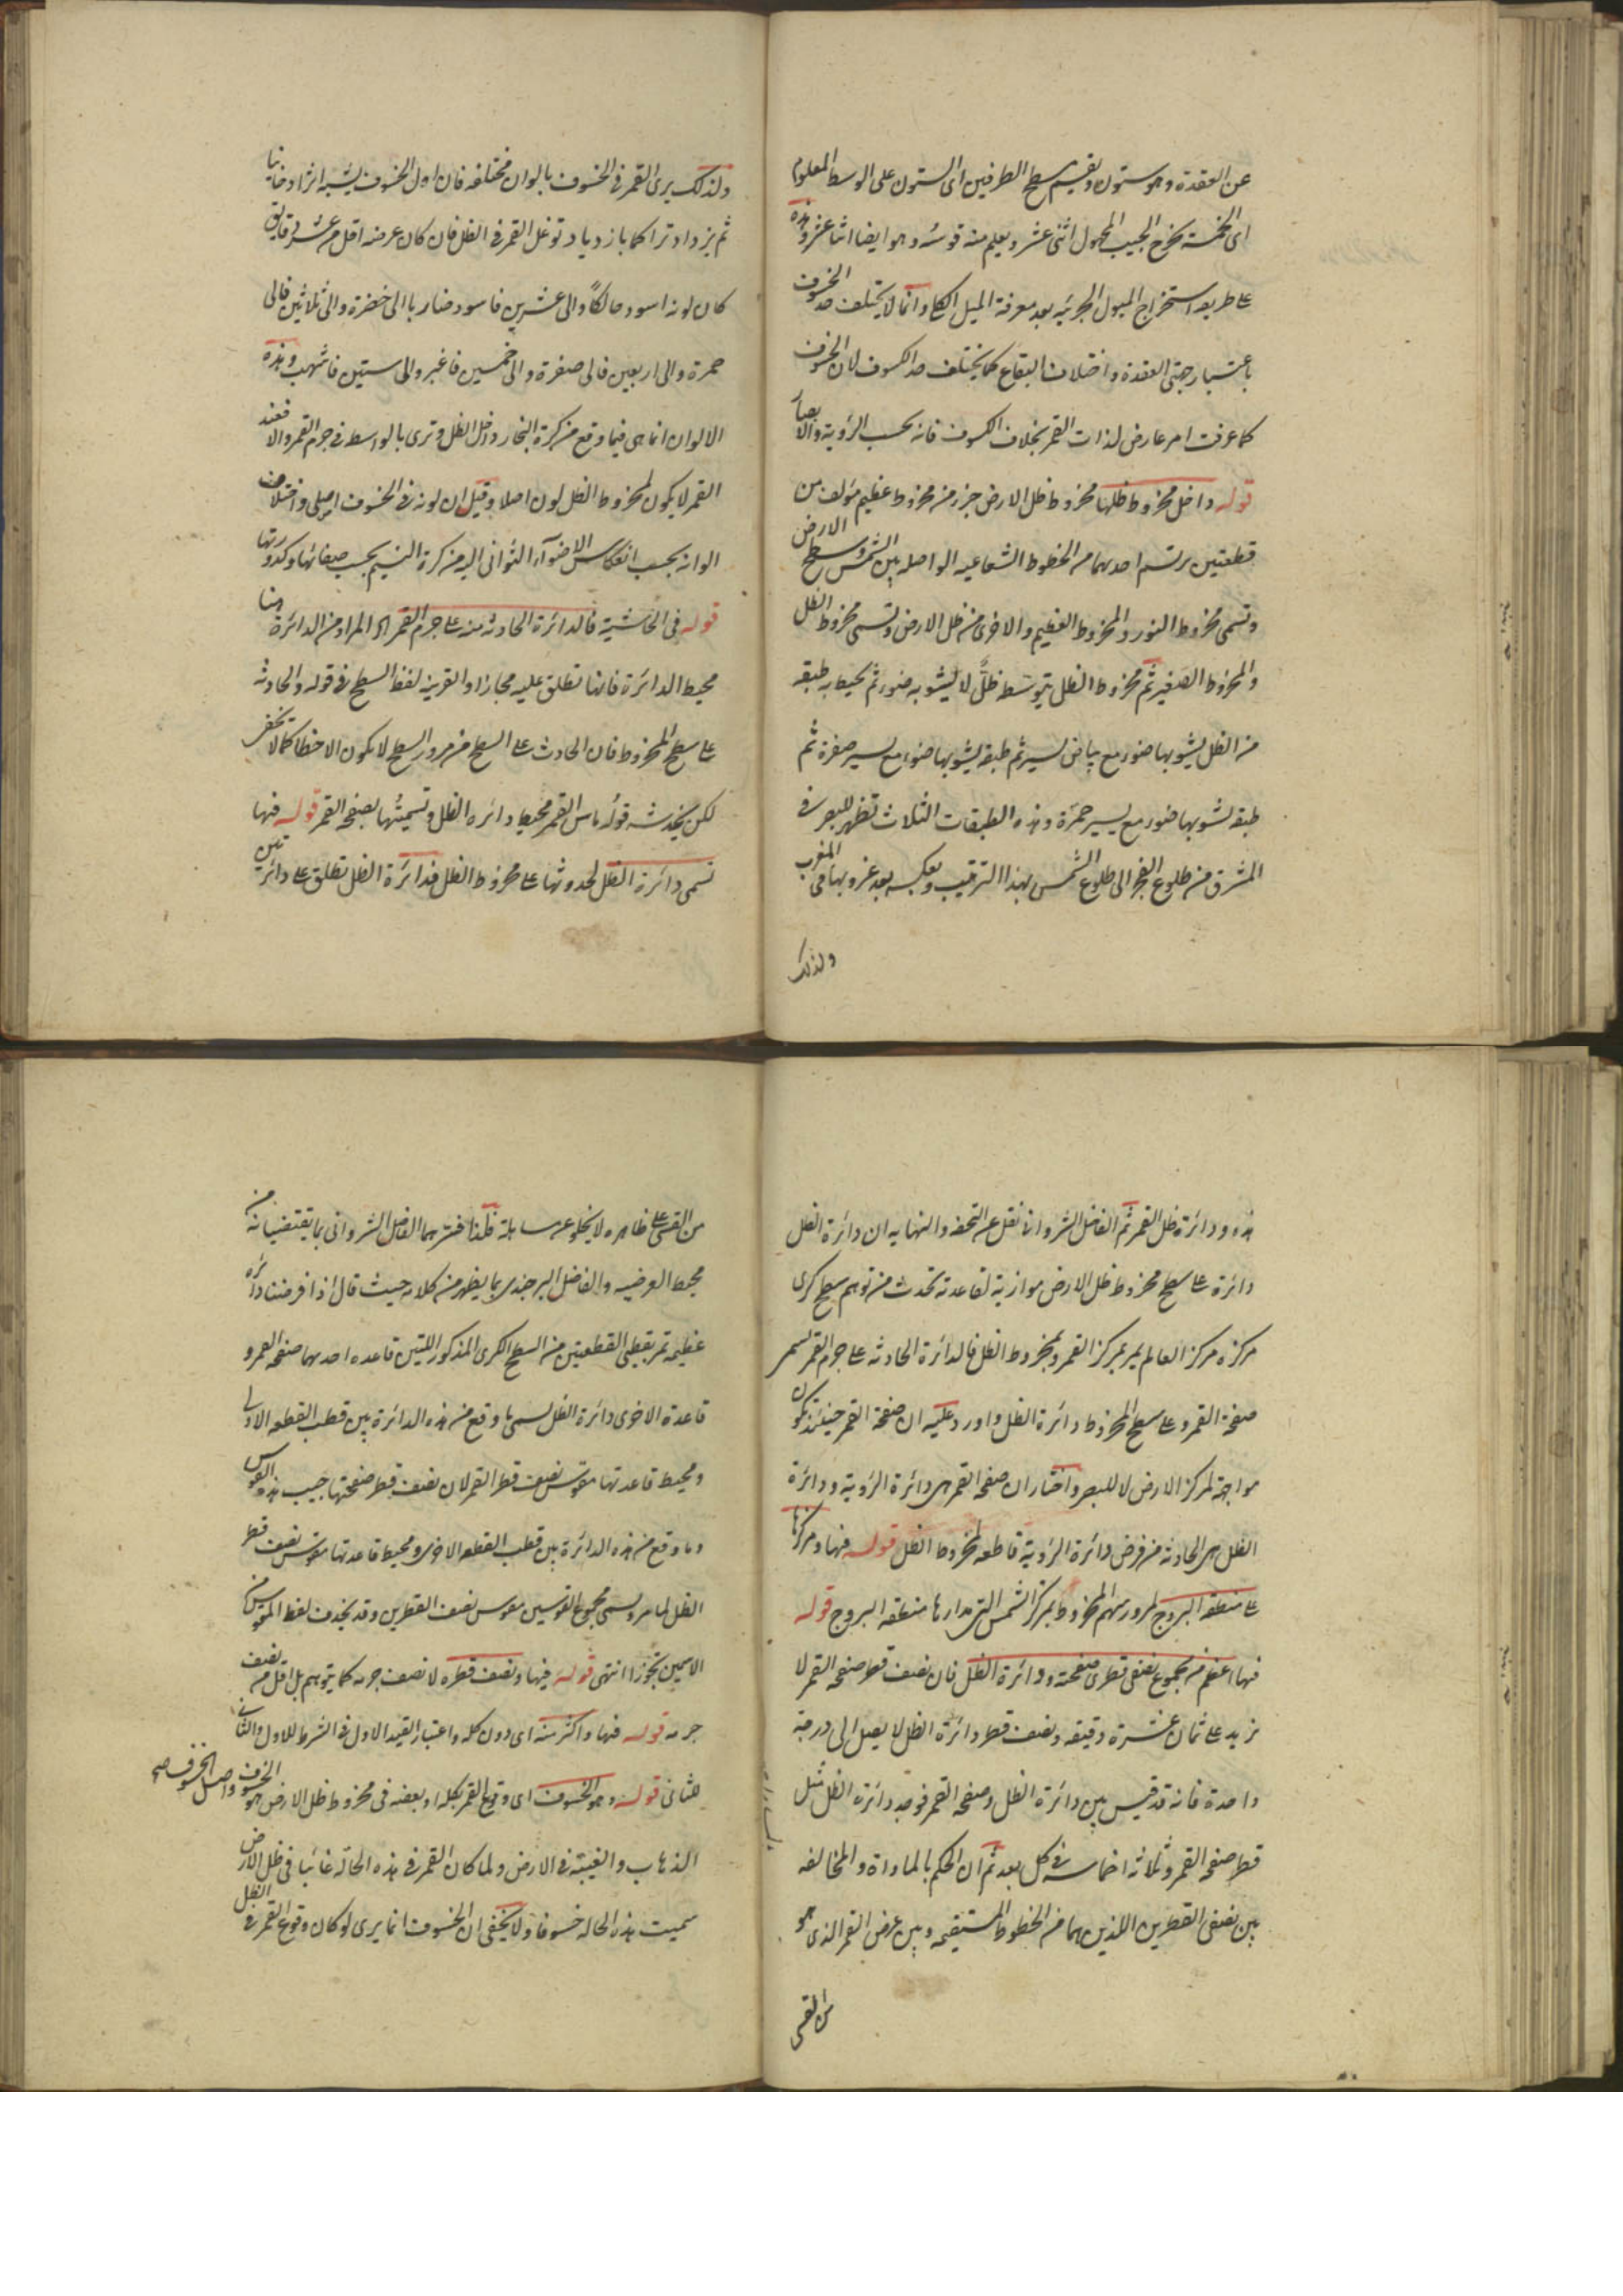 عن العقدة وهو ستون ويقسم سطح الطرفين اى الستون على الوسط المعلوم
اى الخمسة يخرج الجيب المجهول اثنى عشر ويعلم منه قوسه وهو ايضا اثنا عشر وهذه
على طريق استخراج الميول الجزئيه بعد معرفة الميل الكلى وانما لا يختلف حد الخسوف
باعتبار جهتى العقدة واختلاف البقاع كما يختلف حد الكسوف لان الخسوف
كما عرفت امر عارض لذات القمر بخلاف الكسوف فانه بحسب الرؤية والابصار
قوله داخل مخروط ظلها مخروط ظل الارض جزء من مخروط عظيم مؤلف من
قطعتين يرتسم احدهما من الخطوط الشعاعيه الواصله بين الشمس وسطح الارض
وتسمى مخروط النور والمخروط العظيم والاخرى من ظل الارض وتسمى مخروط الظل
والمخروط الصغير ثم مخروط الظل يتوسط ظلّ لا يشوبه ضوء ثم يحيط به طبقه
من الظل يشوبها ضوء مع بياض يسير ثم طبقه يشوبها ضوء مع يسير صفرة ثم
طبقه يشوبها ضوء مع يسير حمرة وهذه الطبقات الثلاث تظهر للبصر فى
المشرق من طلوع الفجر الى طلوع الشمس بهذا الترتيب وبعكسه بعد غروبها فى المغرب
ولذلك
ولذلك يرى القمر فى الخسوف بالوان مختلفه فان اول الخسوف يشبه اثرا دخانيا
ثم يزداد تراكما بازدياد توغل القمر فى الظل فان كان عرضه اقل من عشر دقايق
كان لونه اسود حالكاً والى عشرين فاسود ضاربا الى خضرة والى ثلاثين فالى
حمرة والى اربعين فالى صفرة والى خمسين فاغبر والى ستين فاشهب وهذه
الالوان انما هى فيما وقع من كرة البخار داخل الظل وترى بالواسطه فى جرم القمر والا فعند
القمر لا يكون لمخروط الظل لون اصلا وقيل ان لونه فى الخسوف اصلى واختلاف
الوانه بحسب انعكاس الاضواء الثوانى اليه من كرة النسيم بحسب صفائها وكدورتها
قوله فى الحاشية فالدائرة الحادثه منه على جرم القمر اى المراد من الدائرة هنا
محيط الدائرة فانها تطلق عليه مجازا والقرينه لفظ السطح فى قوله والحادثه
على سطح المخروط فان الحادث على السطح من مرور السطح لا يكون الا خطا كما لا يخفى
لكن يخدشه قوله ماس القمر محيط دائره الظل وتسميتها بصفحه القمر قوله فيها
تسمى دائرة الظل لحدوثها على مخروط الظل فدائرة الظل تطلق على دائرتين
هذه ودائرة ظل القمر ثم الفاضل الشروانى نقل عن التحفه والنهايه ان دائرة الظل
دائرة على سطح مخروط ظل الارض موازية لقاعدته تحدث من توهم سطح كرى
مركزه مركز العالم يمر بمركز القمر وبمخروط الظل فالدائرة الحادثه على جرم القمر تسمى
صفحة القمر وعلى سطح المخروط دائرة الظل واورد عليه ان صفحة القمر حينئذ تكون
مواجهة لمركز الارض لا للبصر واختار ان صفحه القمر هى دائرة الرؤية ودائرة
الظل هى الحادثه من فرض دائرة الرؤية قاطعه لمخروط الظل قوله فيها ومركزها
على منطقه البروج لمرور سهم المخروط بمركز الشمس التى مدارها منطقه البروج قوله
فيها اعظم من مجموع نصفى قطرى صفحته ودائرة الظل فان نصف قطر صفحه القمر لا
يزيد على ثمان عشرة دقيقه ونصف قطر دائرة الظل لا يصل الى درجة
واحدة فانه قد قيس بين دائرة الظل وصفحه القمر فوجد دائرة الظل مثل
قطر صفحه القمر وثلاثه اخماسه فى كل بعد ثم ان الحكم بالمساواة والمخالفه
بين نصفى القطرين اللذين هما من الخطوط المستقيمه وبين عرض القمر الذى هو
من القسى
من القسى على ظاهره لا يخلو عن مساهلة فلذا فسرهما الفاضل الشروانى بما يقتضيانه من
محيط العرضيه والفاضل البرجندى بما يظهر من كلامه حيث قال اذا فرضنا دائره
عظيمه تمر بقطبى القطعتين من السطح الكرى المذكور اللتين قاعده احدهما صفحه القمر و
قاعدة الاخرى دائرة الظل يسمى ما وقع من هذه الدائرة بين قطب القطعه الاولى
ومحيط قاعدتها مقوس نصف قطر القمر لان نصف قطر صفحتها جيب هذه القوس
وما وقع من هذه الدائرة بين قطب القطعه الاخرى ومحيط قاعدتها مقوس نصف قطر
الظل لما مر ويسمى مجموع القوسين مقوس نصف القطرين وقد يحذف لفظ المقوس من
الاسمين تجوزا انتهى قوله فيها ونصف قطره لا نصف جرمه كما يتوهم بل اقل من نصف
جرمه قوله فيها واكثر منه اى دون كله واعتبار القيد الاول فى الشرط للاول والثانى
للثانى قوله وهو الخسوف اى وقوع القمر بكله او بعضه فى مخروط ظل الارض هو الخسوف واصل الخسوف صح
الذهاب والغيبة فى الارض ولما كان القمر فى هذه الحاله غائبا فى ظل الارض
سميت هذه الحاله خسوفا ولا يخفى ان الخسوف انما يرى لو كان وقوع القمر فى الظل